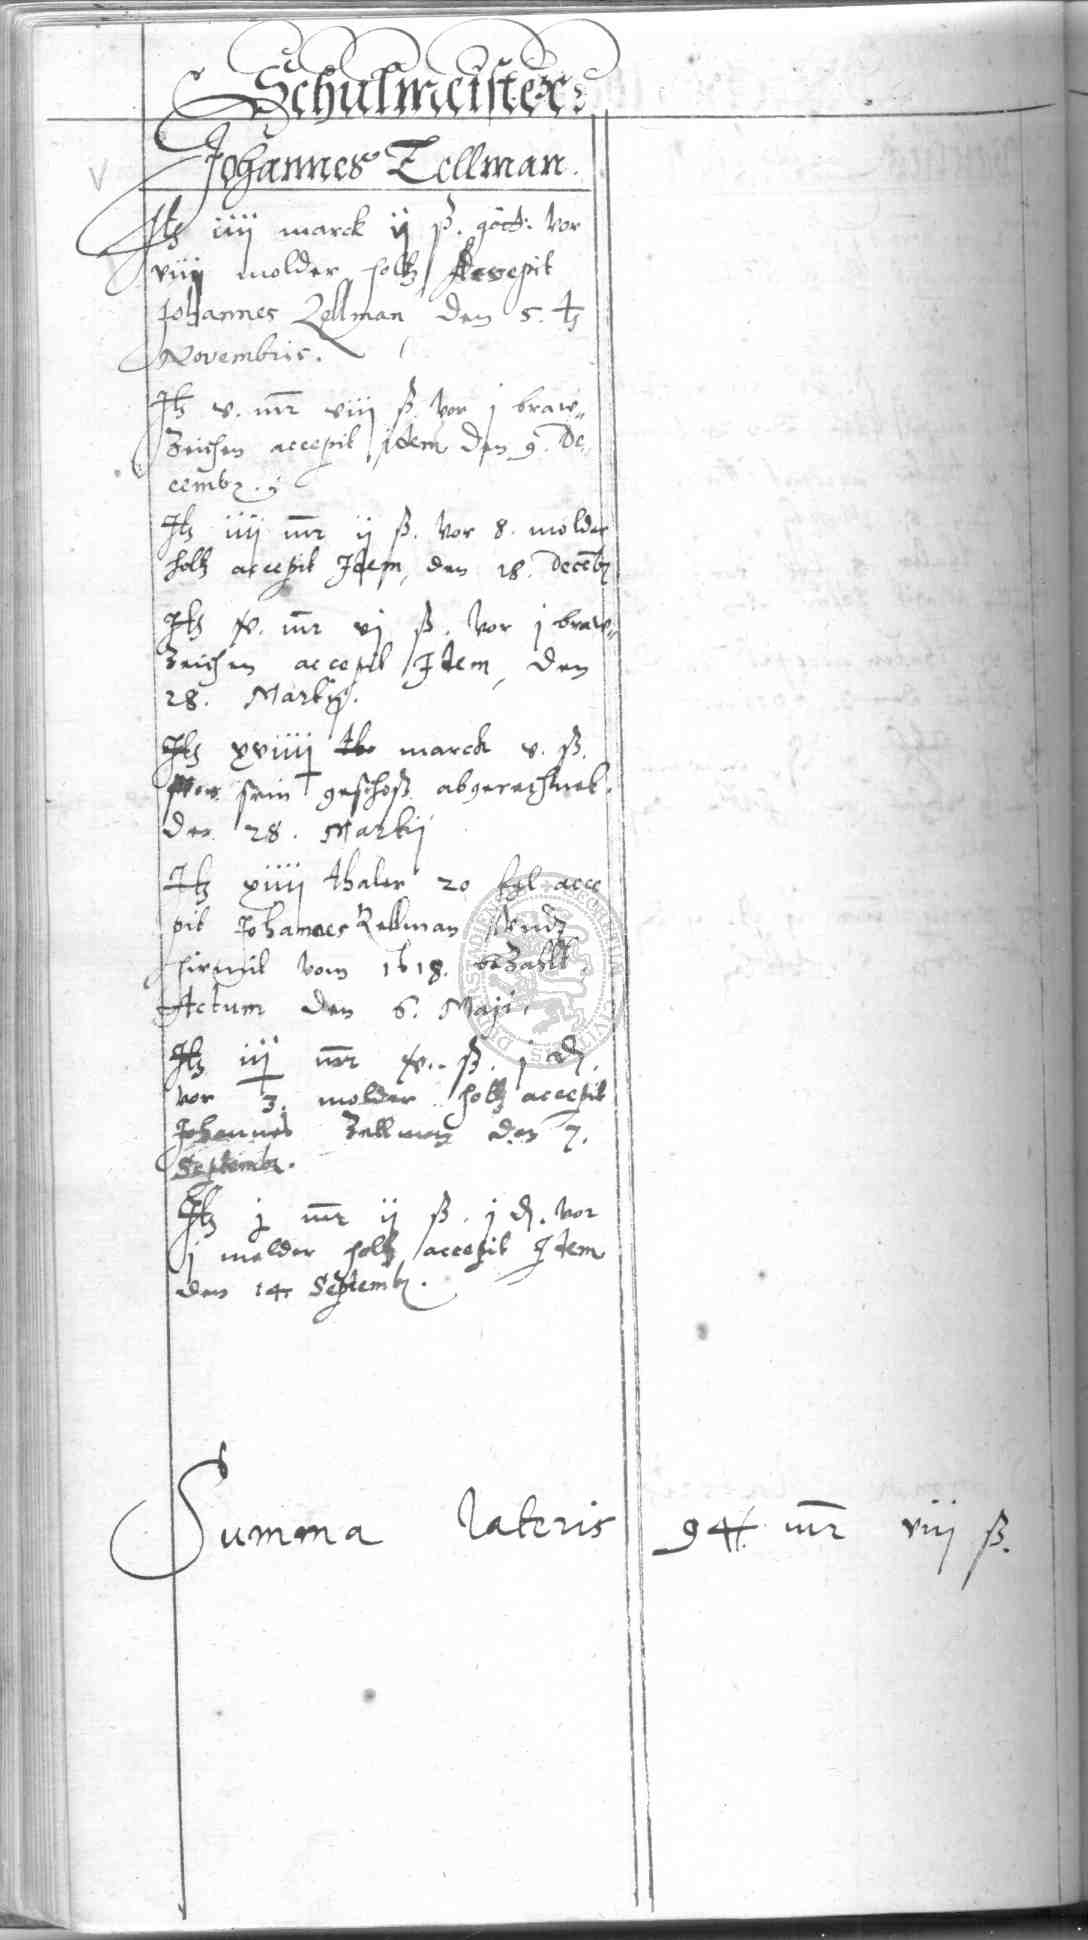 Schulmeister:
Johannes Tellman.
Itz iiij marck ij ß. gött: vor
viij molder holtz Accepit
Johannes Zellman den 5. tz
Novembris.
Itz v. mr viij ß. vor j braw„
Zeichen accepit idem den 9. De„
cembr.
Itz iiij mr ij ß. vor 8. molder
holtz accepit Idem, den 18. Decēb
Itz v. mr vj ß. vor j braw„
Zeichen accepit Idem, den
28. Martij.
Itz xviiij marck v. ß.
Vor sein geschoß abgerechnet.
den 28. Martij
Itz xiiij thaler 20 acce
pit Johannes Zellman
hirmit vom 1618. bezahlt.
Actum den 6. Maji.
Itz iij mr v. ß. j d.
vor 3. molder holtz accepit
Johannes Zellman den 7.
Septemb.
Itz j mr ij ß. j d. vor
j molder holtz accepit Idem
den 14. Septemb.
Summa lateris 94. mr viij ß.